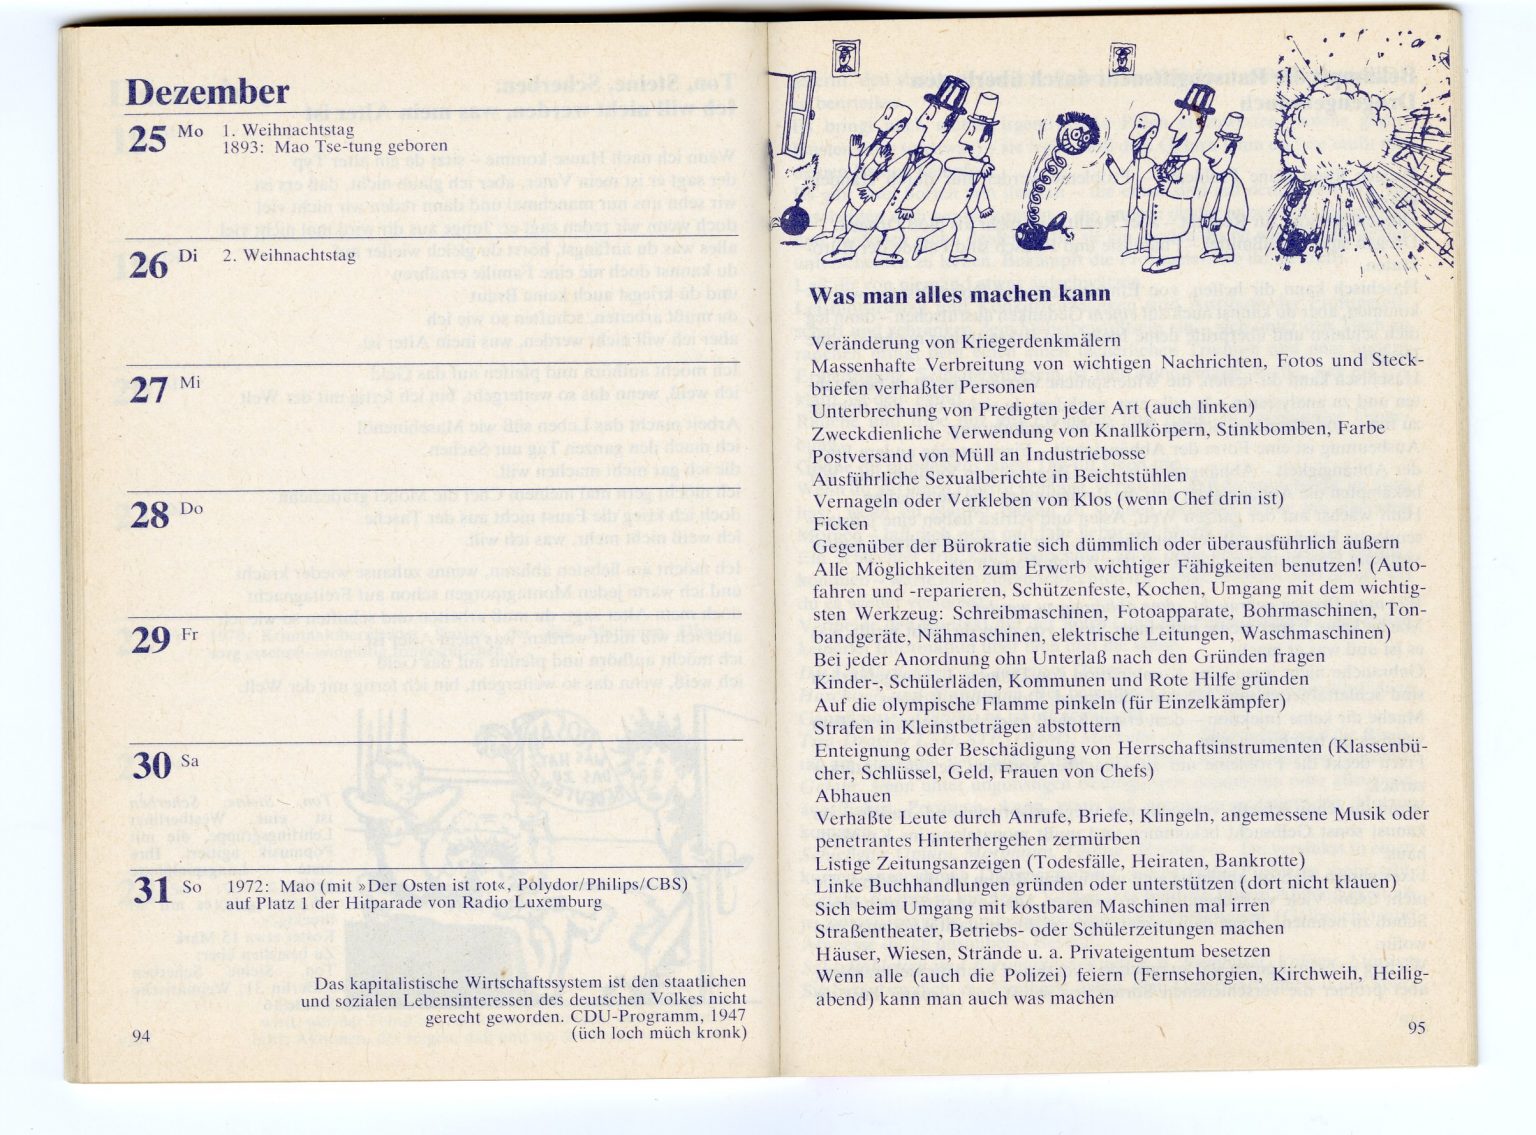 Dezember
25 Mo 1. Weihnachtstag
1893: Mao Tse-tung geboren
26 Di 2. Weihnachtstag
27 Mi
28 Do
29 Fr
30 Sa
31 So 1972: Mao (mit »Der Osten ist rot«, Polydor/Philips/CBS)
auf Platz 1 der Hitparade von Radio Luxemburg
Das kapitalistische Wirtschaftssystem ist den staatlichen
und sozialen Lebensinteressen des deutschen Volkes nicht
gerecht geworden. CDU-Programm, 1947
(üch loch müch kronk)
94
Was man alles machen kann
Veränderung von Kriegerdenkmälern
Massenhafte Verbreitung von wichtigen Nachrichten, Fotos und Steck-
briefen verhaßter Personen
Unterbrechung von Predigten jeder Art (auch linken)
Zweckdienliche Verwendung von Knallkörpern, Stinkbomben, Farbe
Postversand von Müll an Industriebosse
Ausführliche Sexualberichte in Beichtstühlen
Vernageln oder Verkleben von Klos (wenn Chef drin ist)
Ficken
Gegenüber der Bürokratie sich dümmlich oder überausführlich äußern
Alle Möglichkeiten zum Erwerb wichtiger Fähigkeiten benutzen! (Auto-
fahren und -reparieren, Schützenfeste, Kochen, Umgang mit dem wichtig-
sten Werkzeug: Schreibmaschinen, Fotoapparate, Bohrmaschinen, Ton-
bandgeräte, Nähmaschinen, elektrische Leitungen, Waschmaschinen)
Bei jeder Anordnung ohn Unterlaß nach den Gründen fragen
Kinder-, Schülerläden, Kommunen und Rote Hilfe gründen
Auf die olympische Flamme pinkeln (für Einzelkämpfer)
Strafen in Kleinstbeträgen abstottern
Enteignung oder Beschädigung von Herrschaftsinstrumenten (Klassenbü-
cher, Schlüssel, Geld, Frauen von Chefs)
Abhauen
Verhaßte Leute durch Anrufe, Briefe, Klingeln, angemessene Musik oder
penetrantes Hinterhergehen zermürben
Listige Zeitungsanzeigen (Todesfälle, Heiraten, Bankrotte)
Linke Buchhandlungen gründen oder unterstützen (dort nicht klauen)
Sich beim Umgang mit kostbaren Maschinen mal irren
Straßentheater, Betriebs- oder Schülerzeitungen machen
Häuser, Wiesen, Strände u. a. Privateigentum besetzen
Wenn alle (auch die Polizei) feiern (Fernsehorgien, Kirchweih, Heilig-
abend) kann man auch was machen
95